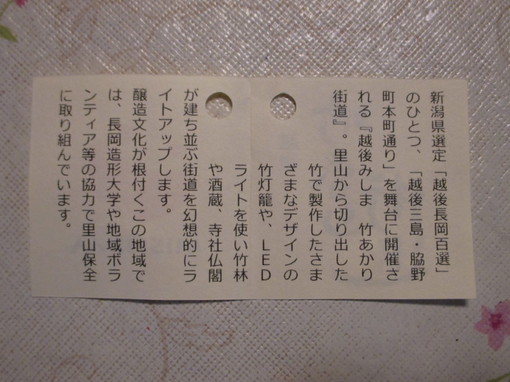 新潟県選定「越後長岡百選」
のひとつ、「越後三島・脇野
町本町通り」を舞台に開催さ
れる『越後みしま 竹あかり
街道』。里山から切り出した
竹で製作したさま
ざまなデザインの
竹灯籠や、LED
ライトを使い竹林
や酒蔵、寺社仏閣
が建ち並ぶ街道を幻想的にラ
イトアップします。
醸造文化が根付くこの地域で
は、長岡造形大学や地域ボラ
ンティア等の協力で里山保全
に取り組んでいます。